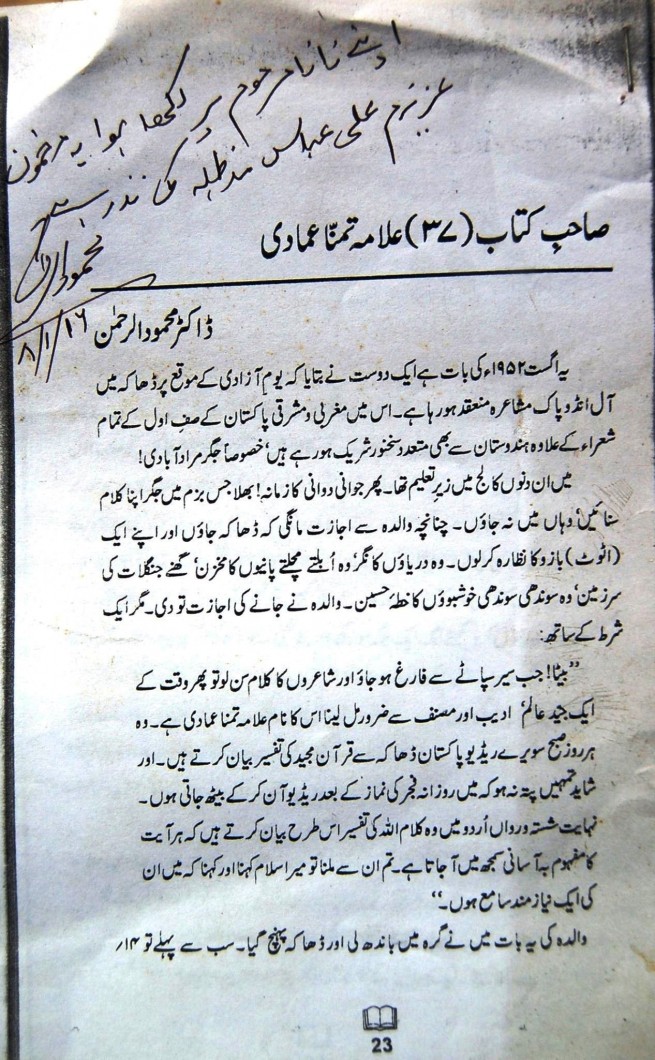 اپنے نانا مرحوم پر لکھا ہوا یہ مضمون
عزیزم علی عباس مدظلہ کی نذر ہے
محمود الرحمٰن
۸/۱/۱۶
صاحبِ کتاب (۳۷) علامہ تمنّا عمادی
ڈاکٹر محمود الرحمٰن
یہ اگست ۱۹۵۲ء کی بات ہے ایک دوست نے بتایا کہ یوم آزادی کے موقع پر ڈھاکہ میں
آل انڈو پاک مشاعرہ منعقد ہو رہا ہے۔ اس میں مغربی و مشرقی پاکستان کے صف اول کے تمام
شعراء کے علاوہ ہندوستان سے بھی متعدد سخنور شریک ہو رہے ہیں‘ خصوصاً جگر مراد آبادی!
میں ان دنوں کالج میں زیر تعلیم تھا۔ پھر جوانی دوانی کا زمانہ! بھلا جس بزم میں جگر اپنا کلام
سنائیں‘ وہاں میں نہ جاؤں۔ چنانچہ والدہ سے اجازت مانگی کہ ڈھاکہ جاؤں اور اپنے ایک
(اٹوٹ) بازو کا نظارہ کر لوں۔ وہ دریاؤں کا نگر‘ وہ اُبلتے مچلتے پانیوں کا مخزن‘ گھنے جنگلات کی
سرزمین‘ وہ سوندھی سوندھی خوشبوؤں کا خطۂ حسین۔ والدہ نے جانے کی اجازت تو دی۔ مگر ایک
شرط کے ساتھ:
’’بیٹا! جب سیر سپاٹے سے فارغ ہو جاؤ اور شاعروں کا کلام سن لو تو پھر وقت کے
ایک جید عالم‘ ادیب اور مصنف سے ضرور مل لینا اس کا نام علامہ تمنا عمادی ہے۔ وہ
ہر روز صبح سویرے ریڈیو پاکستان ڈھاکہ سے قرآن مجید کی تفسیر بیان کرتے ہیں۔ اور
شاید تمہیں پتہ نہ ہو کہ میں روزانہ فجر کی نماز کے بعد ریڈیو آن کر کے بیٹھ جاتی ہوں۔
نہایت شستہ و رواں اُردو میں وہ کلام اللہ کی تفسیر اس طرح بیان کرتے ہیں کہ ہر آیت
کا مفہوم بہ آسانی سمجھ میں آ جاتا ہے۔ تم ان سے ملنا تو میرا سلام کہنا اور کہنا کہ میں ان
کی ایک نیاز مند سامع ہوں۔‘‘
والدہ کی یہ بات میں نے گرہ میں باندھ لی اور ڈھاکہ پہنچ گیا۔ سب سے پہلے تو ۱۴؍
23